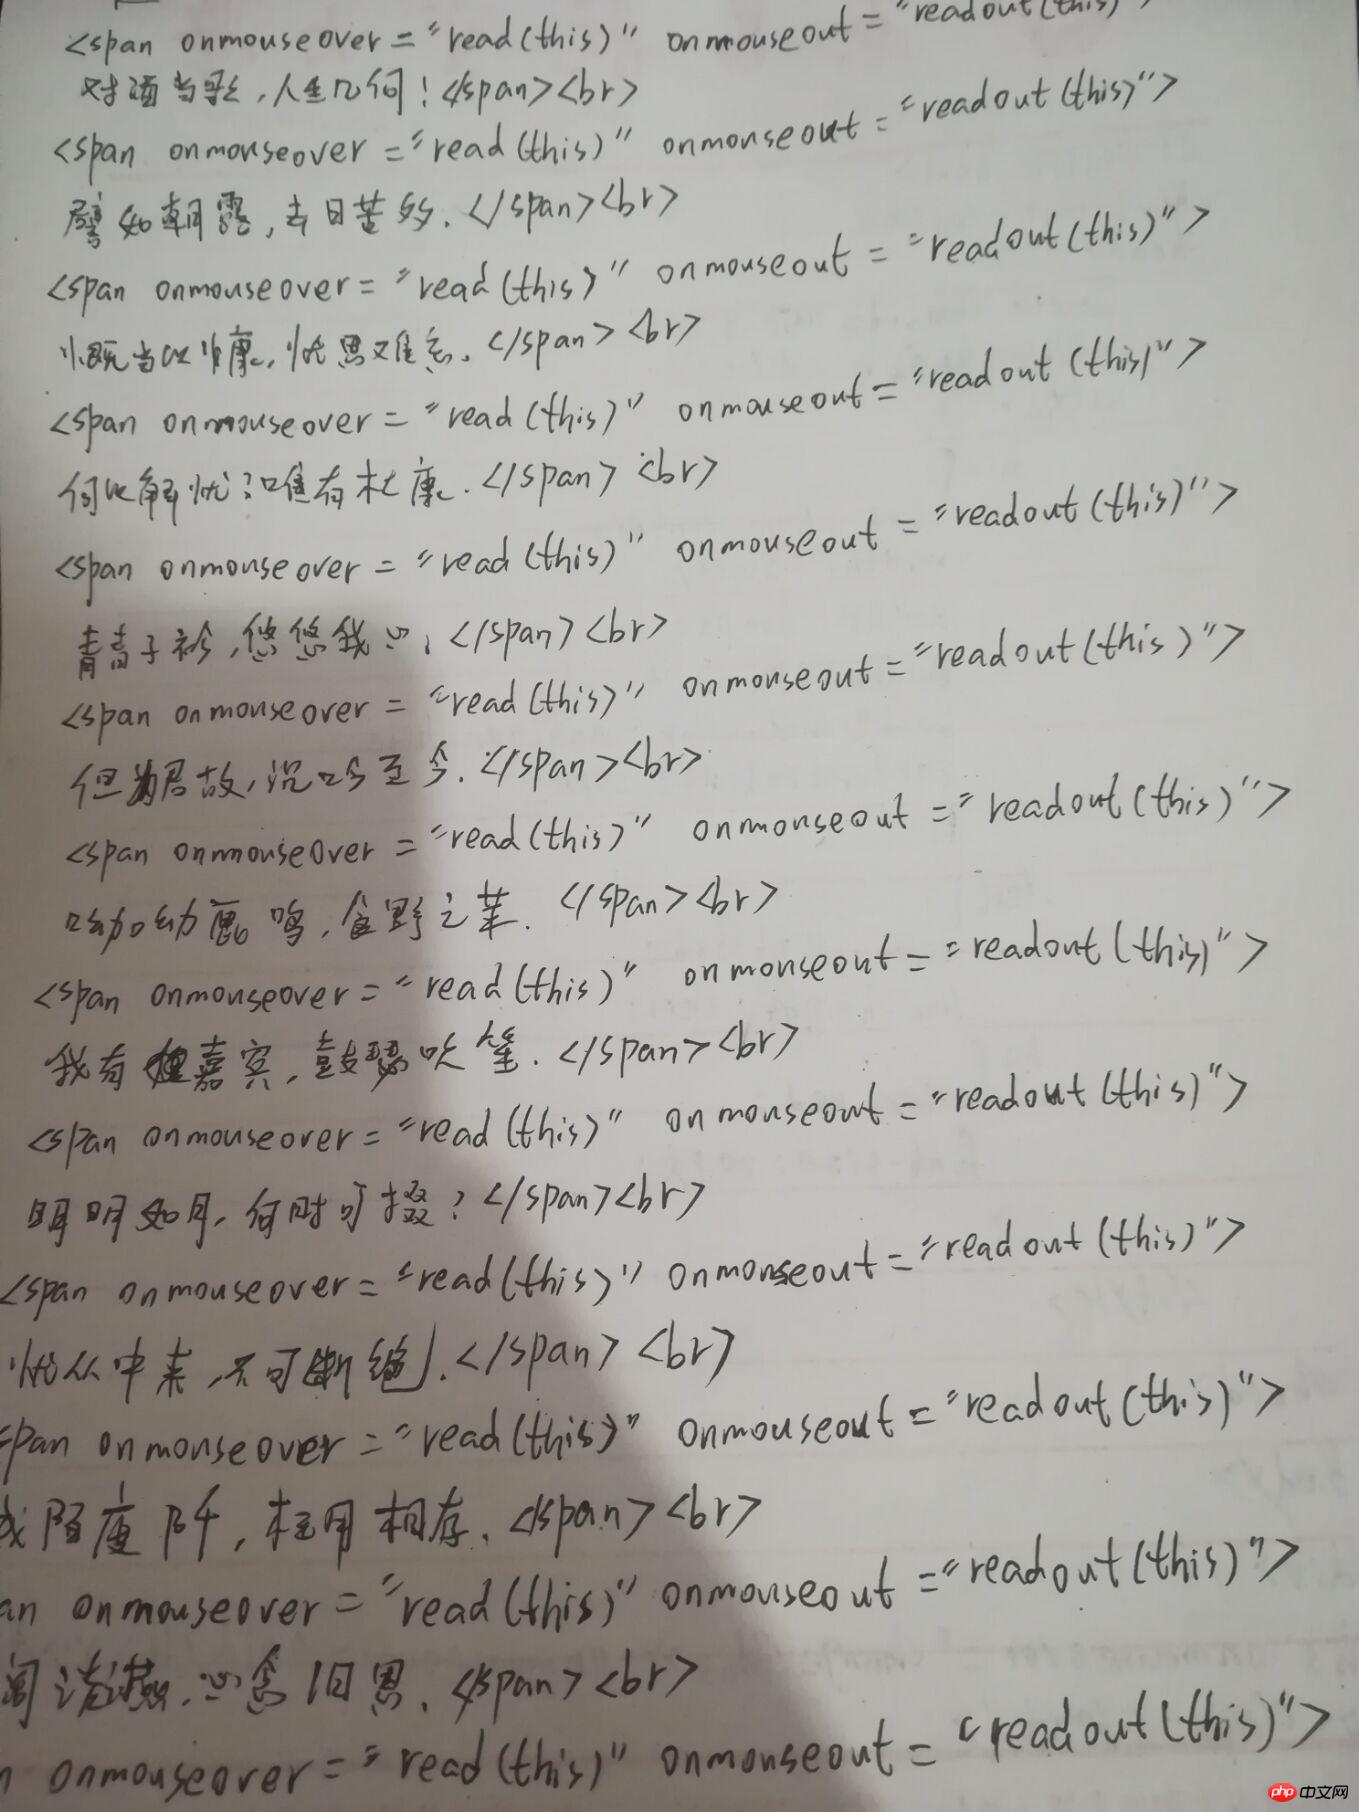 <span onmouseover="read(this)" onmouseout="readout(this)
对酒当歌,人生几何!</span><br>
<span onmouseover="read(this)" onmouseout="readout(this)">
譬如朝露,去日苦多.</span><br>
<span onmouseover="read(this)" onmouseout="readout(this)">
慨当以慷,忧思难忘.</span><br>
<span onmouseover="read(this)" onmouseout="readout(this)">
何以解忧?唯有杜康.</span><br>
<span onmouseover="read(this)" onmouseout="readout(this)">
青青子衿,悠悠我心;</span><br>
<span onmouseover="read(this)" onmouseout="readout(this)">
但为君故,沉吟至今.</span><br>
<span onmouseover="read(this)" onmouseout="readout(this)">
呦呦鹿鸣,食野之苹.</span><br>
<span onmouseover="read(this)" onmouseout="readout(this)">
我有嘉宾,鼓瑟吹笙.</span><br>
<span onmouseover="read(this)" onmouseout="readout(this)">
明明如月,何时可掇?</span><br>
<span onmouseover="read(this)" onmouseout="readout(this)">
忧从中来,不可断绝.</span><br>
span onmouseover="read(this)" onmouseout="readout(this)">
陌度阡,枉用相存.</span><br>
an onmouseover="read(this)" onmouseout="readout(this)">
阔谈䜩,心念旧恩.</span><br>
n onmouseover="read(this)" onmouseout="readout(this)">
php 中文网